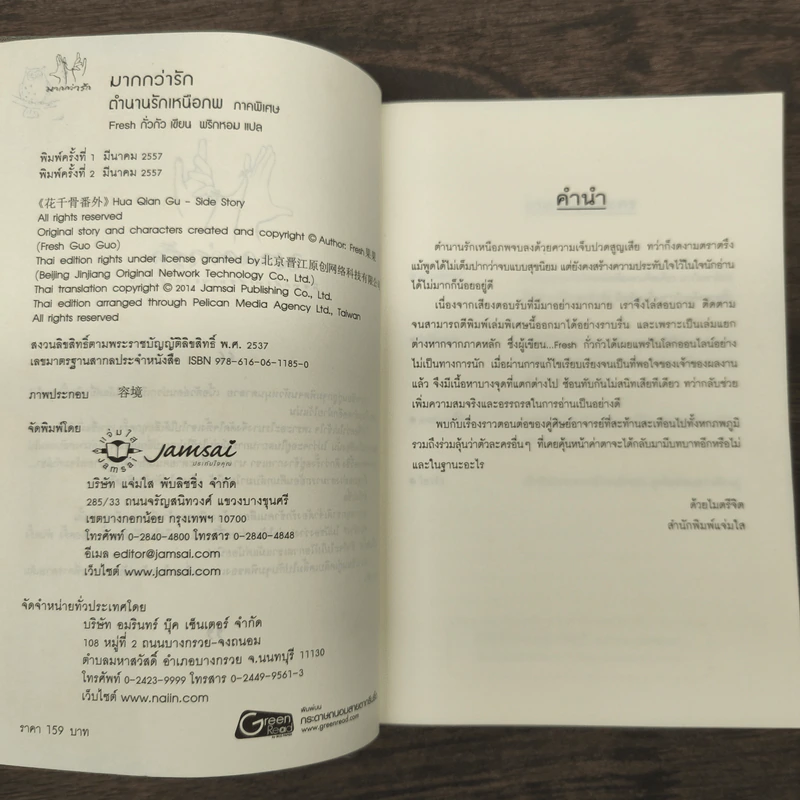 มากกว่ารัก
มากกว่ารัก
ตำนานรักเหนือภพ ภาคพิเศษ
Fresh กั่วกัว เขียน พริกหอม แปล
พิมพ์ครั้งที่ 1 มีนาคม 2557
พิมพ์ครั้งที่ 2 มีนาคม 2557
《花千骨番外》 Hua Qian Gu - Side Story
All rights reserved
Original story and characters created and copyright © Author: Fresh 果果
(Fresh Guo Guo)
Thai edition rights under license granted by 北京晋江原创网络科技有限公司
(Beijing Jinjiang Original Network Technology Co., Ltd.)
Thai translation copyright © 2014 Jamsai Publishing Co., Ltd.
Thai edition arranged through Pelican Media Agency Ltd., Taiwan
All rights reserved
สงวนลิขสิทธิ์ตามพระราชบัญญัติลิขสิทธิ์ พ.ศ. 2537
เลขมาตรฐานสากลประจำหนังสือ ISBN 978-616-06-1185-0
ภาพประกอบ 容境
จัดพิมพ์โดย
แจ่มใส
Jamsai
Jamsai
บริษัท แจ่มใส พับลิชชิ่ง จำกัด
285/33 ถนนจรัญสนิทวงศ์ แขวงบางขุนศรี
เขตบางกอกน้อย กรุงเทพฯ 10700
โทรศัพท์ 0-2840-4800 โทรสาร 0-2840-4848
อีเมล editor@jamsai.com
เว็บไซต์ www.jamsai.com
จัดจำหน่ายทั่วประเทศโดย
บริษัท อมรินทร์ บุ๊ค เซ็นเตอร์ จำกัด
108 หมู่ที่ 2 ถนนบางกรวย-จงถนอม
ตำบลมหาสวัสดิ์ อำเภอบางกรวย จ.นนทบุรี 11130
โทรศัพท์ 0-2423-9999 โทรสาร 0-2449-9561-3
เว็บไซต์ www.naiin.com
ราคา 159 บาท
Green
Read
พิมพ์บน
กระดาษถนอมสายตากรีนรี้ด
www.greenread.com
คำนำ
ตำนานรักเหนือภพจบลงด้วยความเจ็บปวดสูญเสีย ทว่าก็งดงามตราตรึง
แม้พูดได้ไม่เต็มปากว่าจบแบบสุขนิยม แต่ยังคงสร้างความประทับใจไว้ในใจนักอ่าน
ได้ไม่มากก็น้อยอยู่ดี
เนื่องจากเสียงตอบรับที่มีมาอย่างมากมาย เราจึงไล่สอบถาม ติดตาม
จนสามารถตีพิมพ์เล่มพิเศษนี้ออกมาได้อย่างราบรื่น และเพราะเป็นเล่มแยก
ต่างหากจากภาคหลัก ซึ่งผู้เขียน...Fresh กั่วกัวได้เผยแพร่ในโลกออนไลน์อย่าง
ไม่เป็นทางการนัก เมื่อผ่านการแก้ไขเรียบเรียงจนเป็นที่พอใจของเจ้าของผลงาน
แล้ว จึงมีเนื้อหาบางจุดที่แตกต่างไป ซ้อนทับกันไม่สนิทเสียทีเดียว ทว่ากลับช่วย
เพิ่มความสมจริงและอรรถรสในการอ่านเป็นอย่างดี
พบกับเรื่องราวตอนต่อของคู่ศิษย์อาจารย์ที่สะท้านสะเทือนไปทั้งหกภพภูมิ
รวมถึงร่วมลุ้นว่าตัวละครอื่นๆ ที่เคยคุ้นหน้าค่าตาจะได้กลับมามีบทบาทอีกหรือไม่
และในฐานะอะไร
ด้วยไมตรีจิต
สำนักพิมพ์แจ่มใส